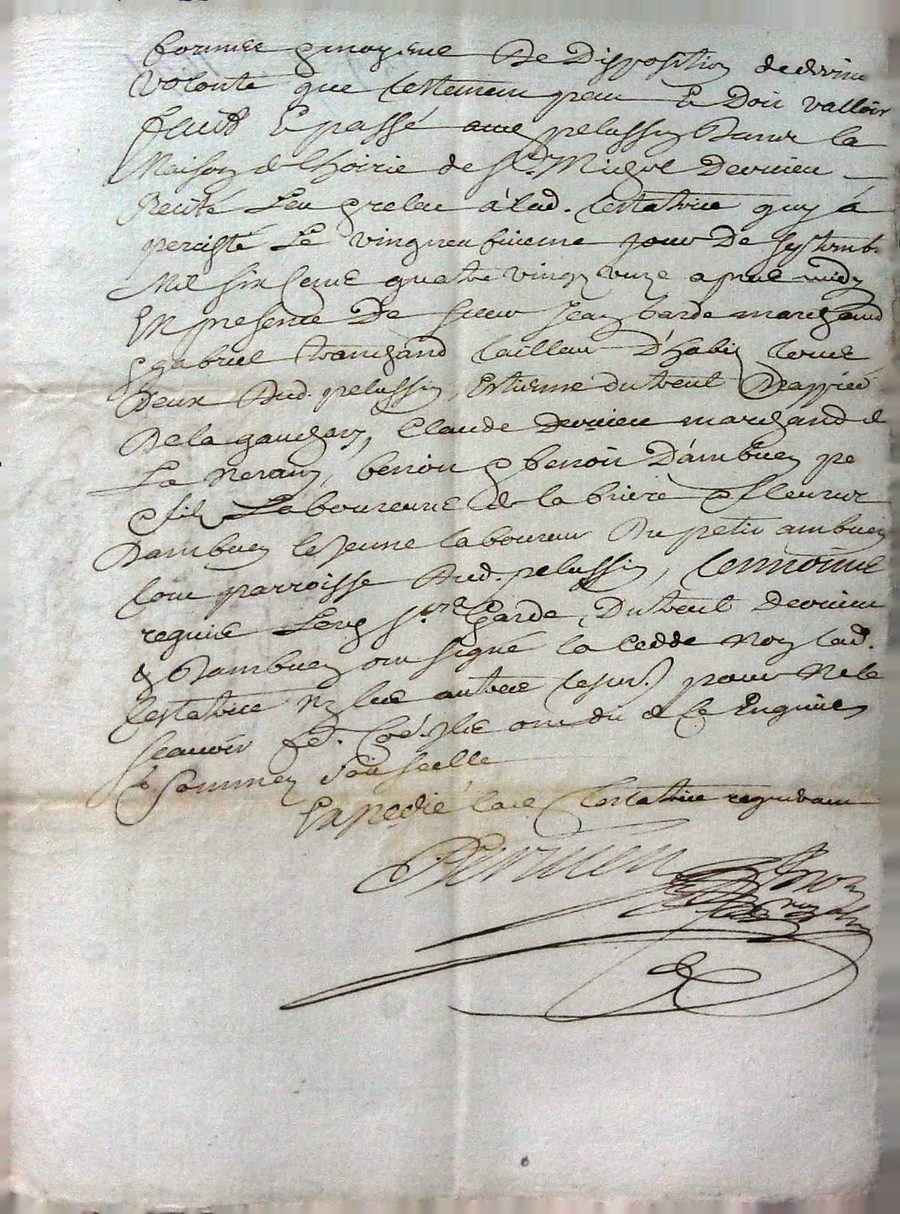 formes & moyens de disposition de derniere
volonté que testement peut & doit valloir
faict & passé aud. pelussin dans la
Maison d'hoirie de Sr. Michel Dervieu
Recité leu & releu à lad. testatrice quy a
percisté Le vingneufvieme jour de septembr
Mil six cens quatre vingz unze apres midy
En presence de sieur Jean barde marchand
& gabriel tailleur d'habis tous
deux dud. pelussin, Estienne duteul
de la , Claude Dervieu marchand de
La , benoit & benoit Dambuen pe
& fils Laboureurs de la & fleurus
Dambuen le jeune laboureur du petit ambuen
tous parroisse dud. pelussin, tesmoins
requis Lesq. srs barde, Duteul Dervieu
& Dambuen ont signé la cedde non lad.
testatrice ny les autres tesm. pour ne le
scauoir de ce Enquis
& sommes soubscelle
Expedié lad. testatrice requerant
Dervieu